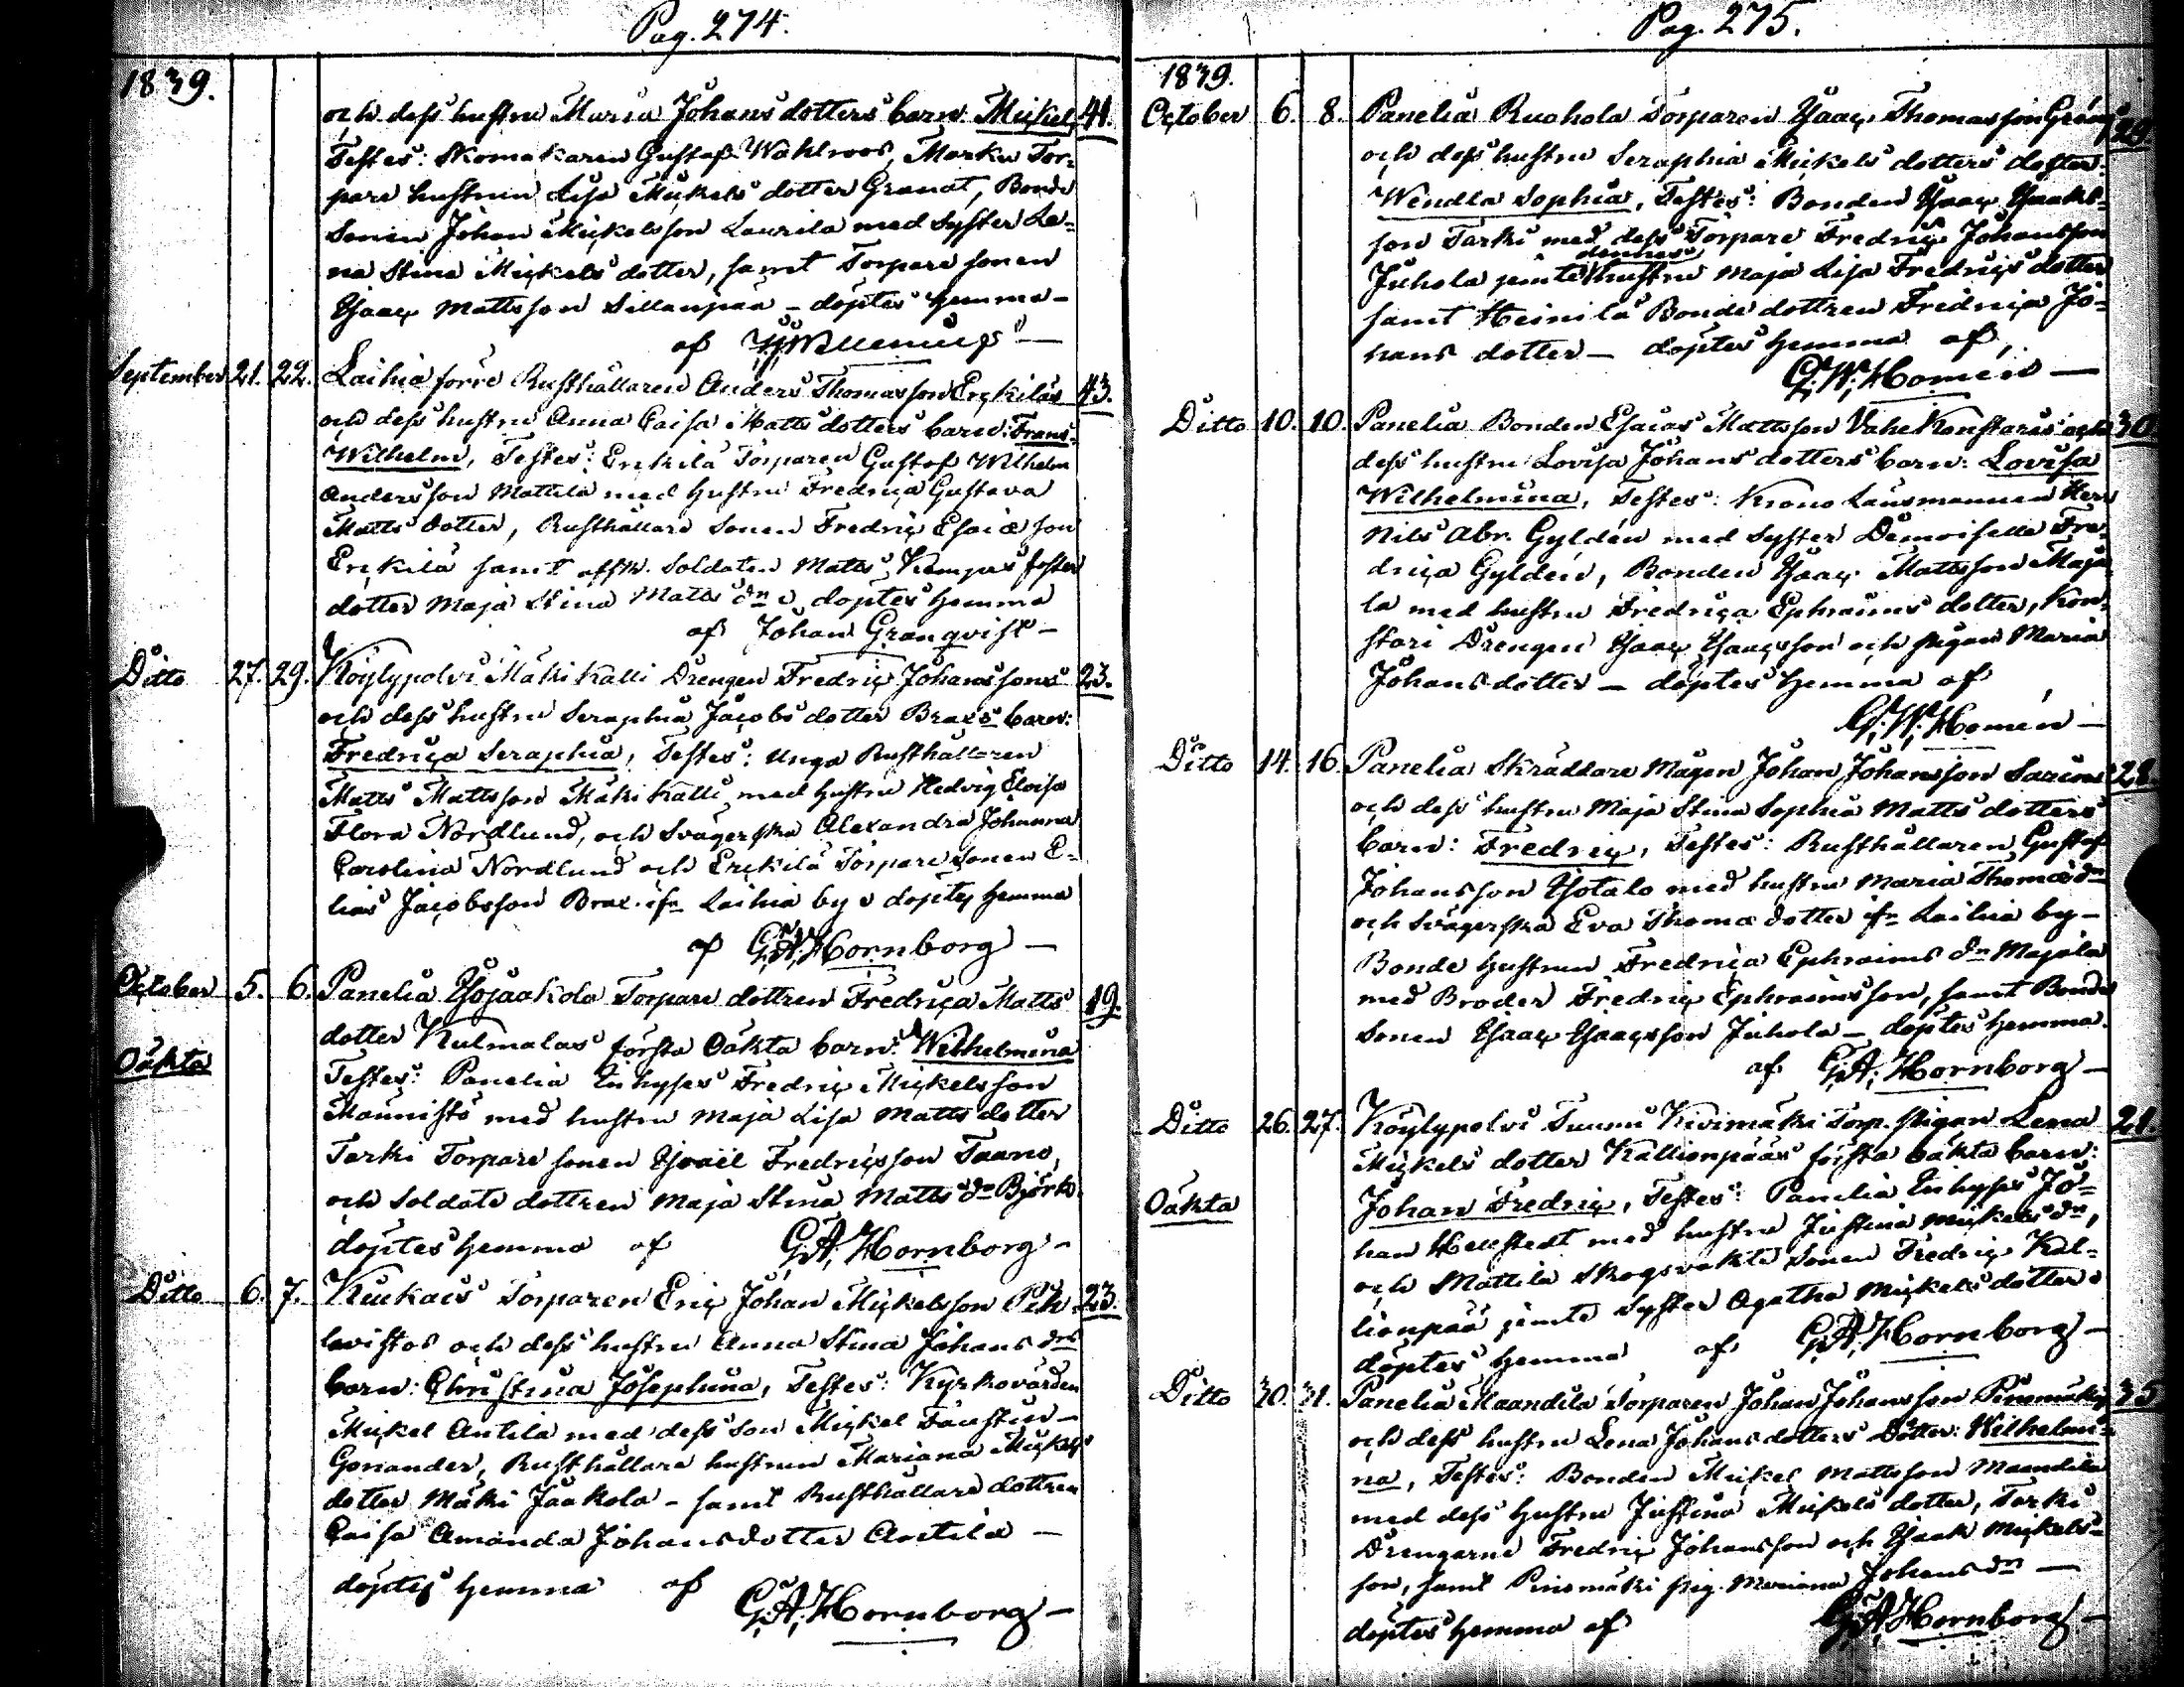 Pag. 274.
1839.
och dess hustru Maria Johansdotters barn Mickel, 41.
Testes: Skomakaren Gustaf Wahlroos, Marku Tor-
pare hustrun Lisa Mickels dotter Granat, Bonde
Sonen Johan Mickelsson Laurila med Syster Le-
na Stina Mickels dotter, samt Torpare sonen
Isaac Mattsson Sillanpää – döptes hemma –
af
September 21. 22. Laihia förre Rusthållaren Anders Thomasson Erckilas 43.
och dess hustru Anna Caisa Matts dotters barn: Frans
Wilhelm, Testes: Erckilä Torparen Gustaf Wilhelm
Andersson Mattila med hustru Fredrica Gustava
Matts dotter, Rusthållare Sonen Fredric Esaiæ son
Erckilä samt afsk. Soldaten Matts Kempas foster
dotter Maja Stina Matts dn döptes hemma
af Johan Granqvist –
Ditto 27. 29. Köylypolvi Mäki Kalli Drengen Fredric Johanssons 23.
och dess hustru Seraphia Jacobs dotter Brax's barn:
Fredrica Seraphia, Testes: Unga Rusthållaren
Matts Mattsson Mäki Kalli med hustru Hedvig Eloisa
Flora Nordlund, och Svägerska Alexandra Johanna
Carolina Nordlund och Erckilä Torpare Sonen E-
lias Jacobsson Brax ifn Laihia by döptes hemma
af G. A. Hornborg –
October 5. 6. Panelia Yojaakola Torpare dottren Fredrica Matts 19.
dotter Kulmalas första Oäkta barn: Wilhelmina
Oäkta
Testes: Panelia Inhyses Fredric Mickelsson
Maunisto med hustru Maja Lisa Matts dotter
Tarki Torpare sonen Israel Fredricsson Taano,
och Soldats dottren Maja Stina Matts dn Björk
döptes hemma af G. A. Hornborg –
Ditto 6. 7. Kiukais Torparen Eric Johan Mickelsson Pih- 23.
lavistos och dess hustru Anna Stina Johans drs
barn: Christina Josephina, Testes: Kyrkovärden
Mickel Antila med dess son Mickel Faustin
Gonander, Rusthållare hustrun Mariana Mickels
dotter Mäki Jaakola – samt Rusthållare dottren
Caisa Amanda Johansdotter Antila –
döptes hemma af
G. A. Hornborg –
Pag. 275.
1839.
October 6. 8. Panelia Ruohola Torparen Isaac Thomasson Gräns 29.
och dess hustru Seraphia Mickels dotters dotter:
Wendla Sophia, Testes: Bonden Isaac Isaaks-
son Tarki med dess Torpare Fredric Johansson
Juhola jemte dennes hustru Maja Lisa Fredrics dotter
samt Heinilä Bonde dottren Fredrica Jo-
hans dotter – döptes hemma af
G. W. Homén –
Ditto 10. 10. Panelia Bonden Esaias Mattsson Vähe Konstaris och 30.
dess hustru Lovisa Johans dotters barn: Lovisa
Wilhelmina, Testes: Krono Länsmannen Herr
Nils Abr. Gyldén med syster Demoiselle Fre-
drica Gyldén, Bonden Isaac Mattsson Maja-
la med hustru Fredrica Ephraims dotter, Kon-
stari Drengen Isaac Isaacsson och pigan Maria
Johansdotter – döptes hemma af
G. W. Homén –
Ditto 14. 16. Panelia Skräddare Mågen Johan Johansson Sarins 28.
och dess hustru Maja Stina Sophia Matts dotters
barn: Fredric, Testes: Rusthållaren Gustaf
Johansson Isotalo med hustru Maria Thomæ dn
och Svägerska Eva Thomæ dotter ifn Laihia by –
Bonde hustrun Fredrica Ephraims dn Majala
med Broder Fredric Ephraimsson, samt Bonde
Sonen Isaac Isaacsson Juhola – döptes hemma
af G. A. Hornborg –
Ditto 26. 27. Köylypolvi Tuomi Kivimäki Torp. pigan Lena 21.
Mickels dotter Kallionpääs första oäkta barn:
Oäkta
Johan Fredric, Testes: Panelia Inhyses Jo-
han Hellstedt med hustru Justina Mickels dn,
och Mattila Skogsvakts Sonen Fredric Kal-
lionpää jemte syster Agatha Mickels dotter
döptes hemma af G. A. Hornborg –
Ditto 30. 31. Panelia Maandila Torparen Johan Johansson Pinomäkis 35
och dess hustru Lena Johans dotters Dotter: Wilhelmi-
na, Testes: Bonden Mickel Mattsson Maandila
med dess hustru Justina Mickels dotter, Tarki
Drengarne Fredric Johansson och Isaak Mickels-
son, samt Pinomäki pig. Mariana Johans dn –
döptes hemma af G. A. Hornborg –